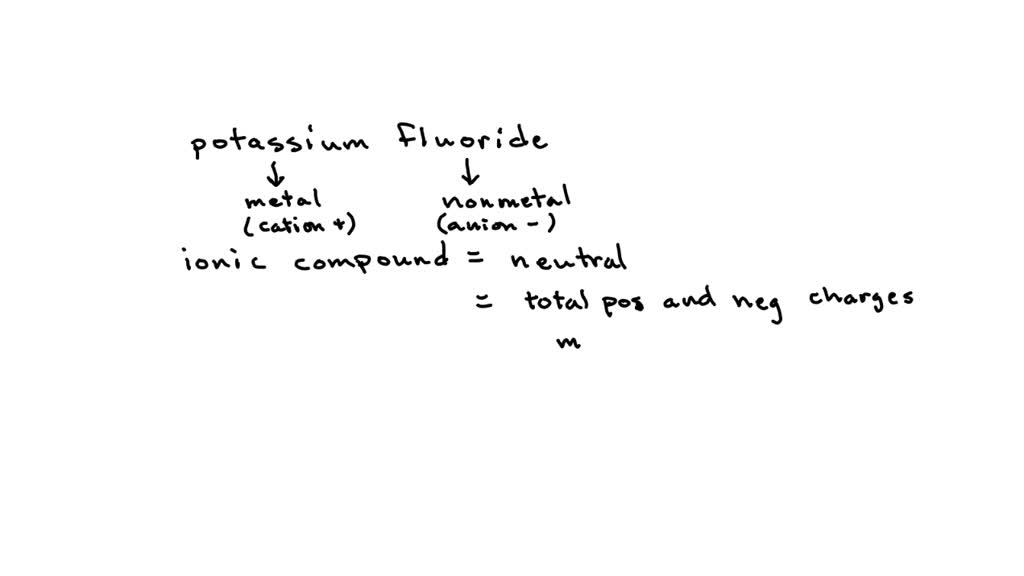 potassium fluoride
↓ ↓
metal nonmetal
(cation +) (anion -)
ionic compound = neutral
= total pos and neg charges
m